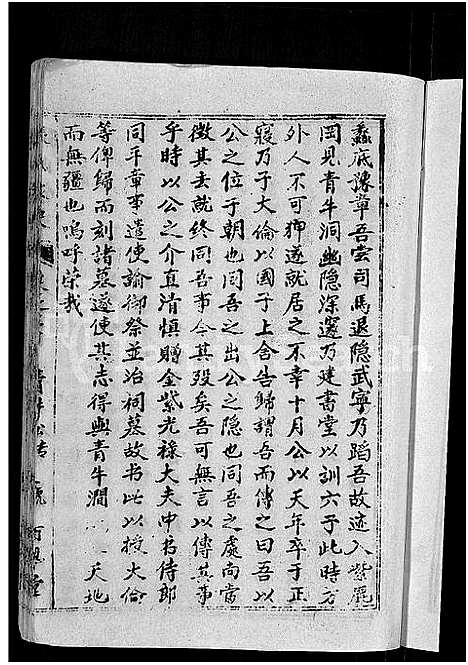 蠡底豫章吾尝司馬退隐武寧乃蹈吾故迹入紫鹿
岡見青牛洞幽隐深邃乃建書堂以訓六子此時方
外人不可狎遂就居之不幸十月公以天年卒于正
寢乃子大倫以國子上舍告歸謂吾而傳之曰吾以
公之位于朝也同吾之出公之隐也同吾之處尚當
徴其去就終同吾事今其殁矣吾可無言以傳其事
乎時以公之介直清慎贈金紫光祿大夫中书侍郎
同平章事遣使諭御祭並治祠墓故书此以授大倫
等俾歸而刻諸墓遂使其志得與青牛澗 天地
而無疆也嗚呼荣哉